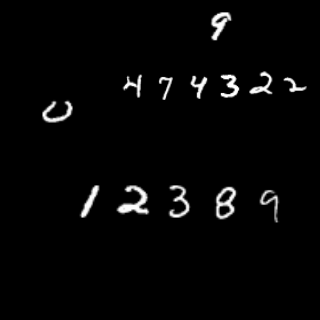 9
474322
0
12389